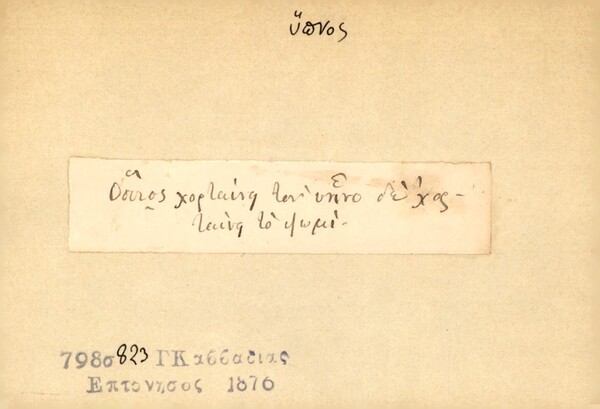 ὕπνος
Ὅποιος χορταίνῃ τὸν ὕπνο δὲ χορ-
ταίνῃ τὸ ψωμί.
798σ823 ΓΚαββαδιας
Επτονησος 1876